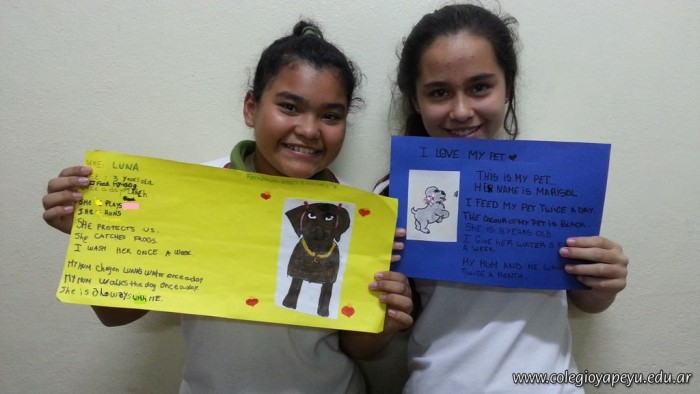 LUNA
3 years old
SHE PLAYS
SHE RUNS
SHE PROTECTS US.
SHE CATCHES FROGS.
I WASH HER ONCE A WEEK
MY MUM WALKS THE DAY ONCE A DAY
SHE IS ALWAYS WITH ME.
I LOVE MY PET
THIS IS MY PET
HER NAME IS MARISOL
I FEED MY PET TWICE A DAY.
THE COLOUR OF MY PET IS BLACK
SHE IS YEARS OLD
I GIVE HER WATER
A WEEK
MY MUM AND ME
TWICE A MONTH.
www.colegioyapeyu.edu.ar